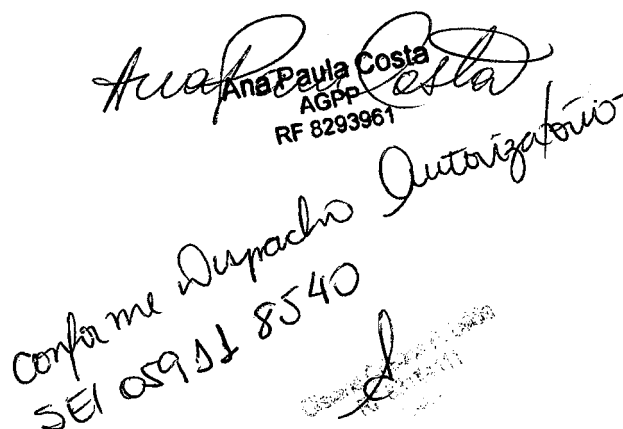 Ana Paula Costa
Ana Paula Costa
AGPP
RF 8293961
conforme Despacho Autorizatório
SEI 05911 8540